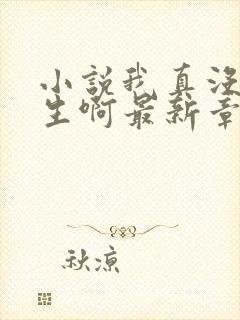 小說我真没
生啊最新章
秋凉